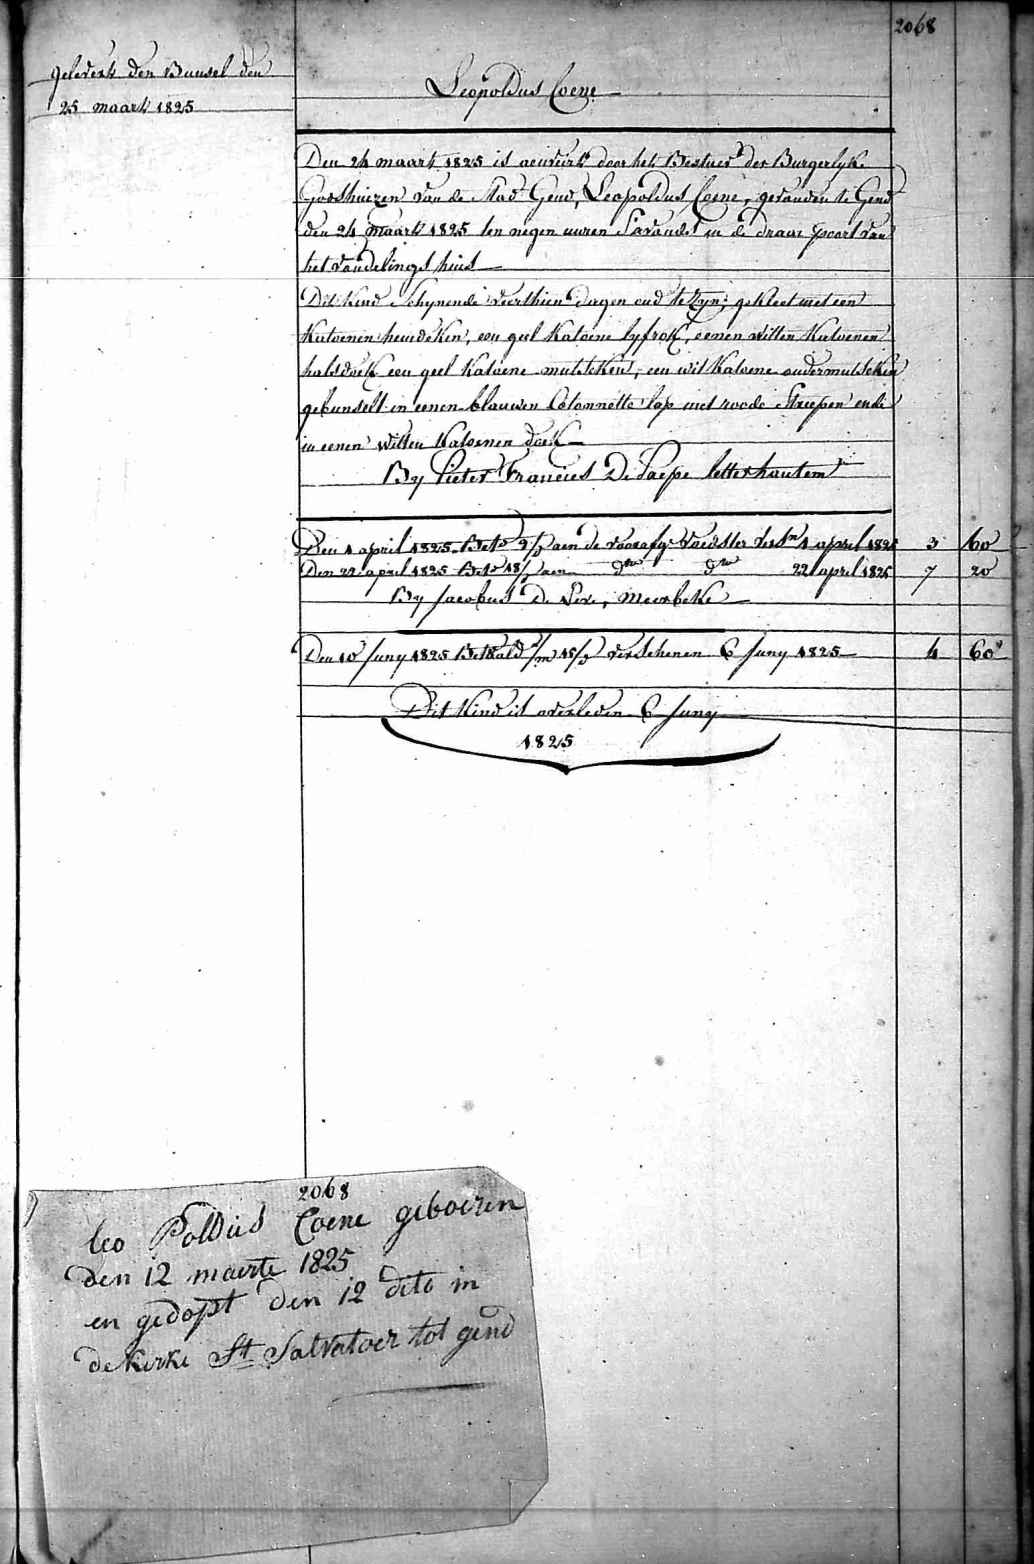 2068
gelevert den Bunsel den
25 maart 1825
Leopoldus Coene
Den 24 maart 1825 is aenveirt door het Bestuer der Burgerlyke
Godshuizen van de Stad Gend, Leopoldus Coene, gevonden te Gend
den 24 maart 1825 ten negen uuren s'avonds in de draai poort van
het vondelingshuis
Dit kind schynende veerthien dagen oud te zyn: gekleet met een
katoenen hemdeken, een geel katoene lyfrok, eenen witten katoenen
halsdoek een geel katoene mutsken, een wit katoene ondermutsken
gebunselt in eenen blauwen Cotonnette lap met roode streepen ende
in eenen witten katoenen doek
By Pieter Francies De Paepe letterhautem
Den 1 april 1825 Bet. aen de voorafg. voedster 1 april 1825 3 60
Den 22 april 1825 Bet. aen dto dto 22 april 1825 7 20
By Jacobus De, Meirbeke
Den 10 Juny 1825 Betaald verschenen 6 Juny 1825 4 60
Dit kind is overleden 6 Juny
1825
2068
leo Poldus Coene geboeren
den 12 maerte 1825
en gedopt den 12 dito in
de kerke St Salvatoer tot gend